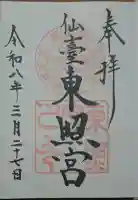 奉拝
仙臺東照宮
令和八年三月二十七日